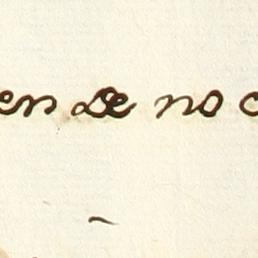 en de no c